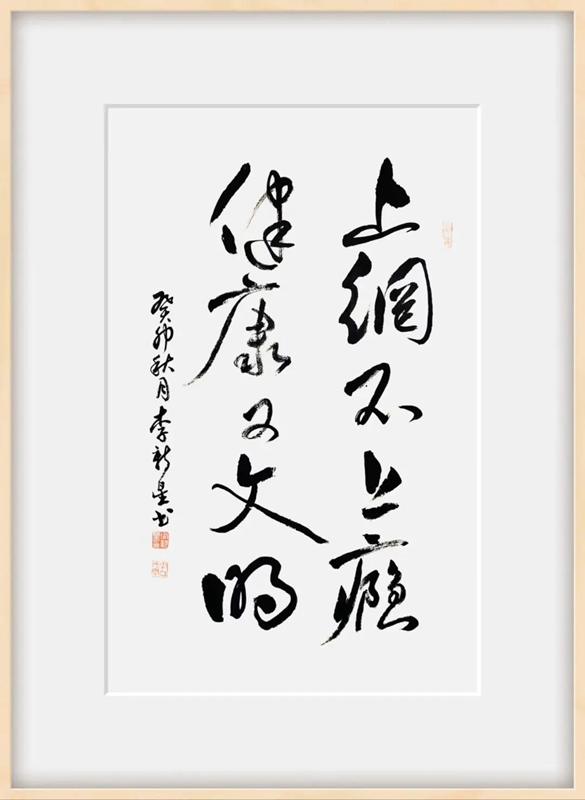 上網不上瘾
健康又文明
癸卯秋月李新星书